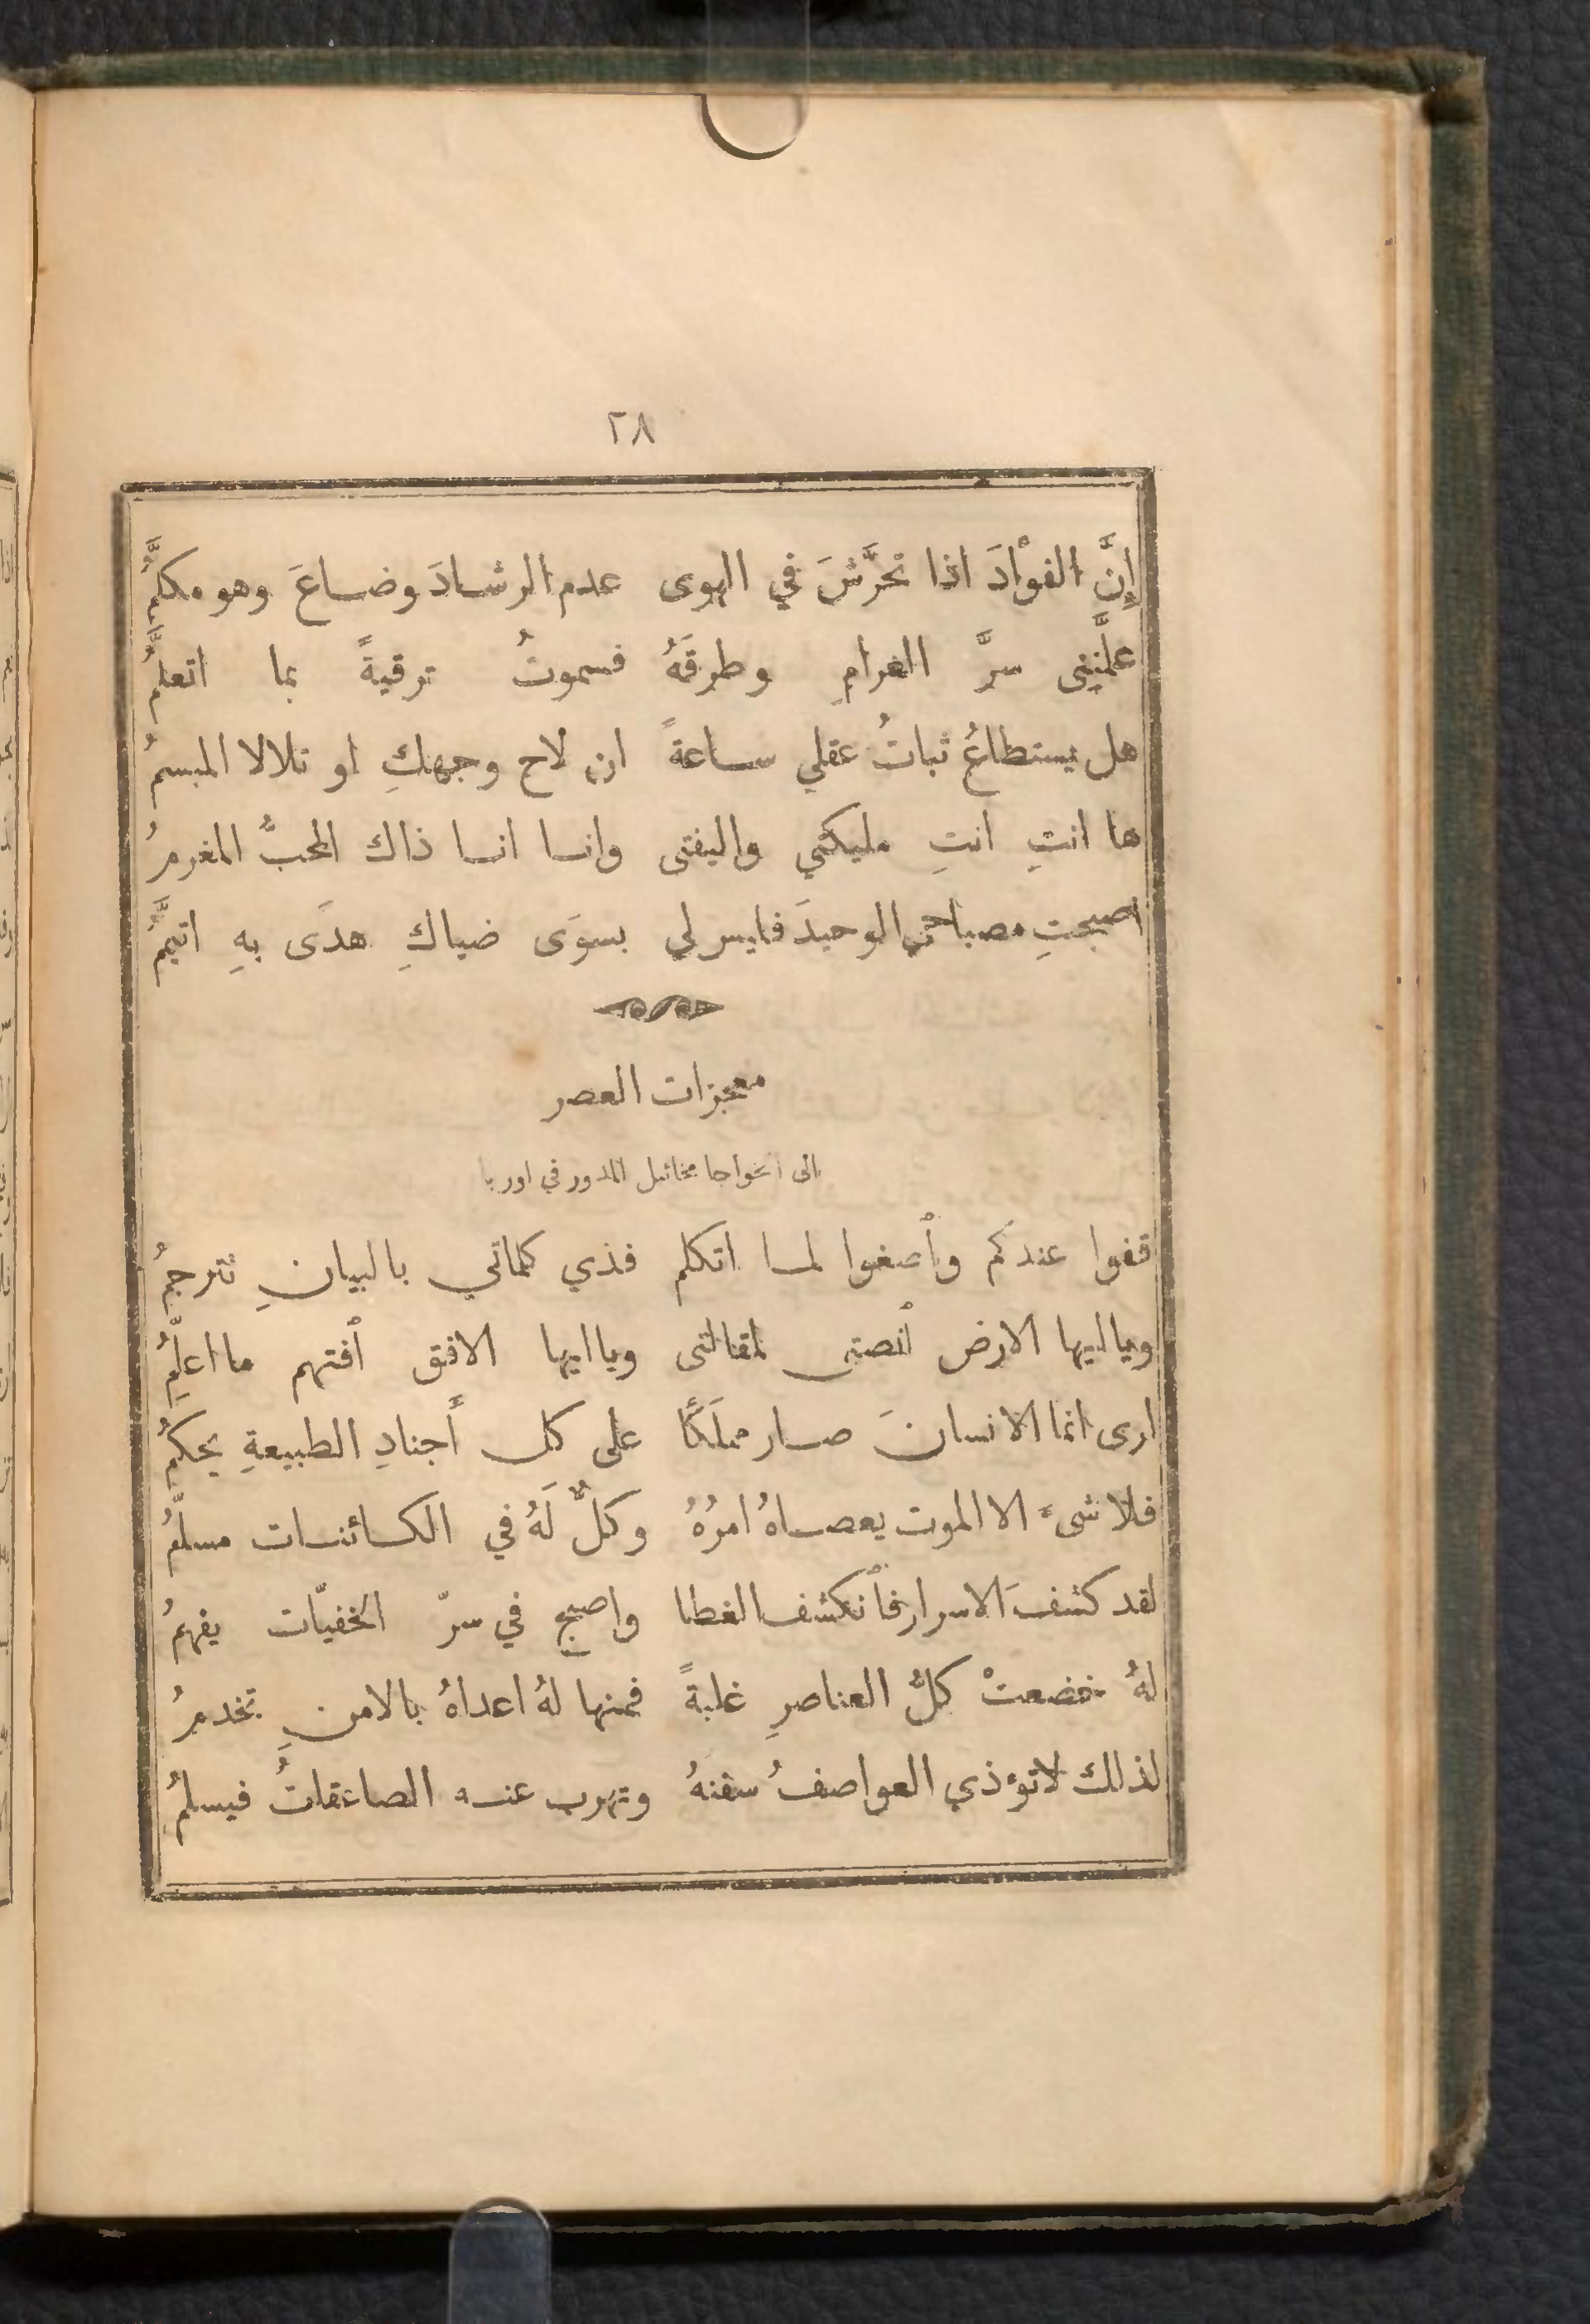 ٢٨
إِنَّ الفوْادَ اذا تحرَّشَ في الهوى عدم الرشادَ وضاعَ وهو مكلَّمُ
علَّمتِني سرَّ الغرامِ وطرقَهُ فسموتُ ترقيةً بما اتعلَّمُ
هل يستطاعُ ثباتُ عقلي ساعةً ان لاح وجهكِ او تلالا المبسمُ
ها انتِ انتِ مليكتي واليفتي وانا انا ذاك المحبُّ المغرمُ
اصبحتِ مصباحي الوحيدَ فليس لي بسوَى ضياكِ هدَى بهِ اتيمَّمُ
معجزات العصر
الى الخواجا مخائيل المدور في اوربا
قفوا عندكم وأصغوا لما اتكلم فذي كلماتي بالبيانِ تترجمُ
ويا ايها الارض أنصتي لمقالتي ويا ايها الافق أفتهم ما اعلِّمُ
ارى انما الانسانَ صار مملَكًا على كل أَجنادِ الطبيعةِ يحكمُ
فلا شيء الا الموت يعصاهُ امرُهُ وكلٌّ لَهُ في الكائنات مسلّمُ
لقد كشفَ الاسرار فأنكشف الغطا واصبح في سرّ الخفيّات يفهمُ
لهُ خضعتْ كلُّ العناصرِ غلبةً فمنها لهُ اعداهُ بالامنِ تخدمُ
لذلك لا تؤذي العواصفُ سفنهُ وتهرب عنه الصاعقاتُ فيسلمُ